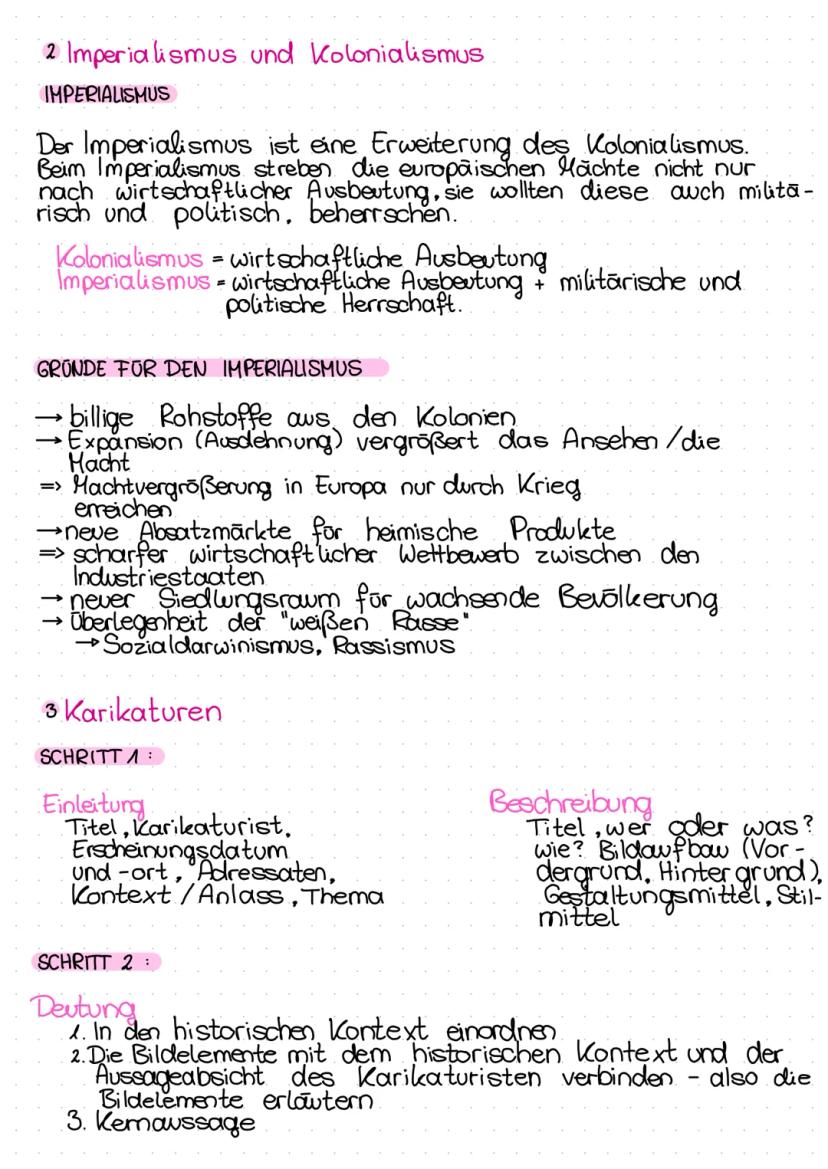 2 Imperialismus und Kolonialismus
IMPERIALISMUS
Der Imperialismus ist eine Erweiterung des Kolonialismus.
Beim Imperialismus streben die europäischen Mächte nicht nur
nach wirtschaftlicher Ausbeutung, sie wollten diese auch militä-
risch und politisch, beherrschen.
Kolonialismus = wirtschaftliche Ausbeutung
Imperialismus = wirtschaftliche Ausbeutung + militärische und
politische Herrschaft.
GRÜNDE FÜR DEN IMPERIALISMUS
→ billige Rohstoffe aus den Kolonien
→ Expansion (Ausdehnung) vergrößert das Ansehen / die
Macht
=> Machtvergrößerung in Europa nur durch Krieg
erreichen
→ neue Absatzmärkte für heimische Produkte
=> scharfer wirtschaftlicher Wettbewerb zwischen den
Industriestaaten
→ neuer Siedlungsraum für wachsende Bevölkerung
→ Überlegenheit der "weißen Rasse"
→ Sozialdarwinismus, Rassismus
3 Karikaturen
SCHRITT 1 :
Einleitung
Titel, Karikaturist,
Erscheinungsdatum
und -ort, Adressaten,
Kontext / Anlass, Thema
Beschreibung
Titel, wer oder was?
wie? Bildaufbau (Vor-
dergrund, Hintergrund),
Gestaltungsmittel, Stil-
mittel
SCHRITT 2 :
Deutung
1. In den historischen Kontext einordnen
2. Die Bildelemente mit dem historischen Kontext und der
Aussageabsicht des Karikaturisten verbinden - also die
Bildelemente erläutern
3. Kernaussage